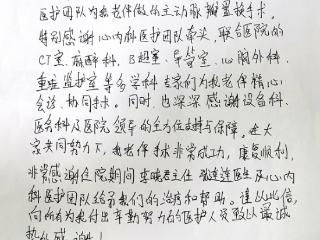 医护团队为我老伴做的主动脉瓣置换手术。
特别感谢心内科医护团队带头，联合医院的
CT室、麻醉科、B超室、导管室、心胸外科、
重症监护室等多学科专家们为我老伴精心
会诊、协同手术。同时，也深深感谢设备科、
医务科及医院领导的全力在支持与保障。在大
家共同努力下，我老伴手术非常成功，康复顺利，
非常感谢住院期间 主任 医生及心内
科医护团队给予我们的治疗和帮助。谨以此信，
向所有为我付出辛勤努力的医护人员致以最诚
热的感谢！